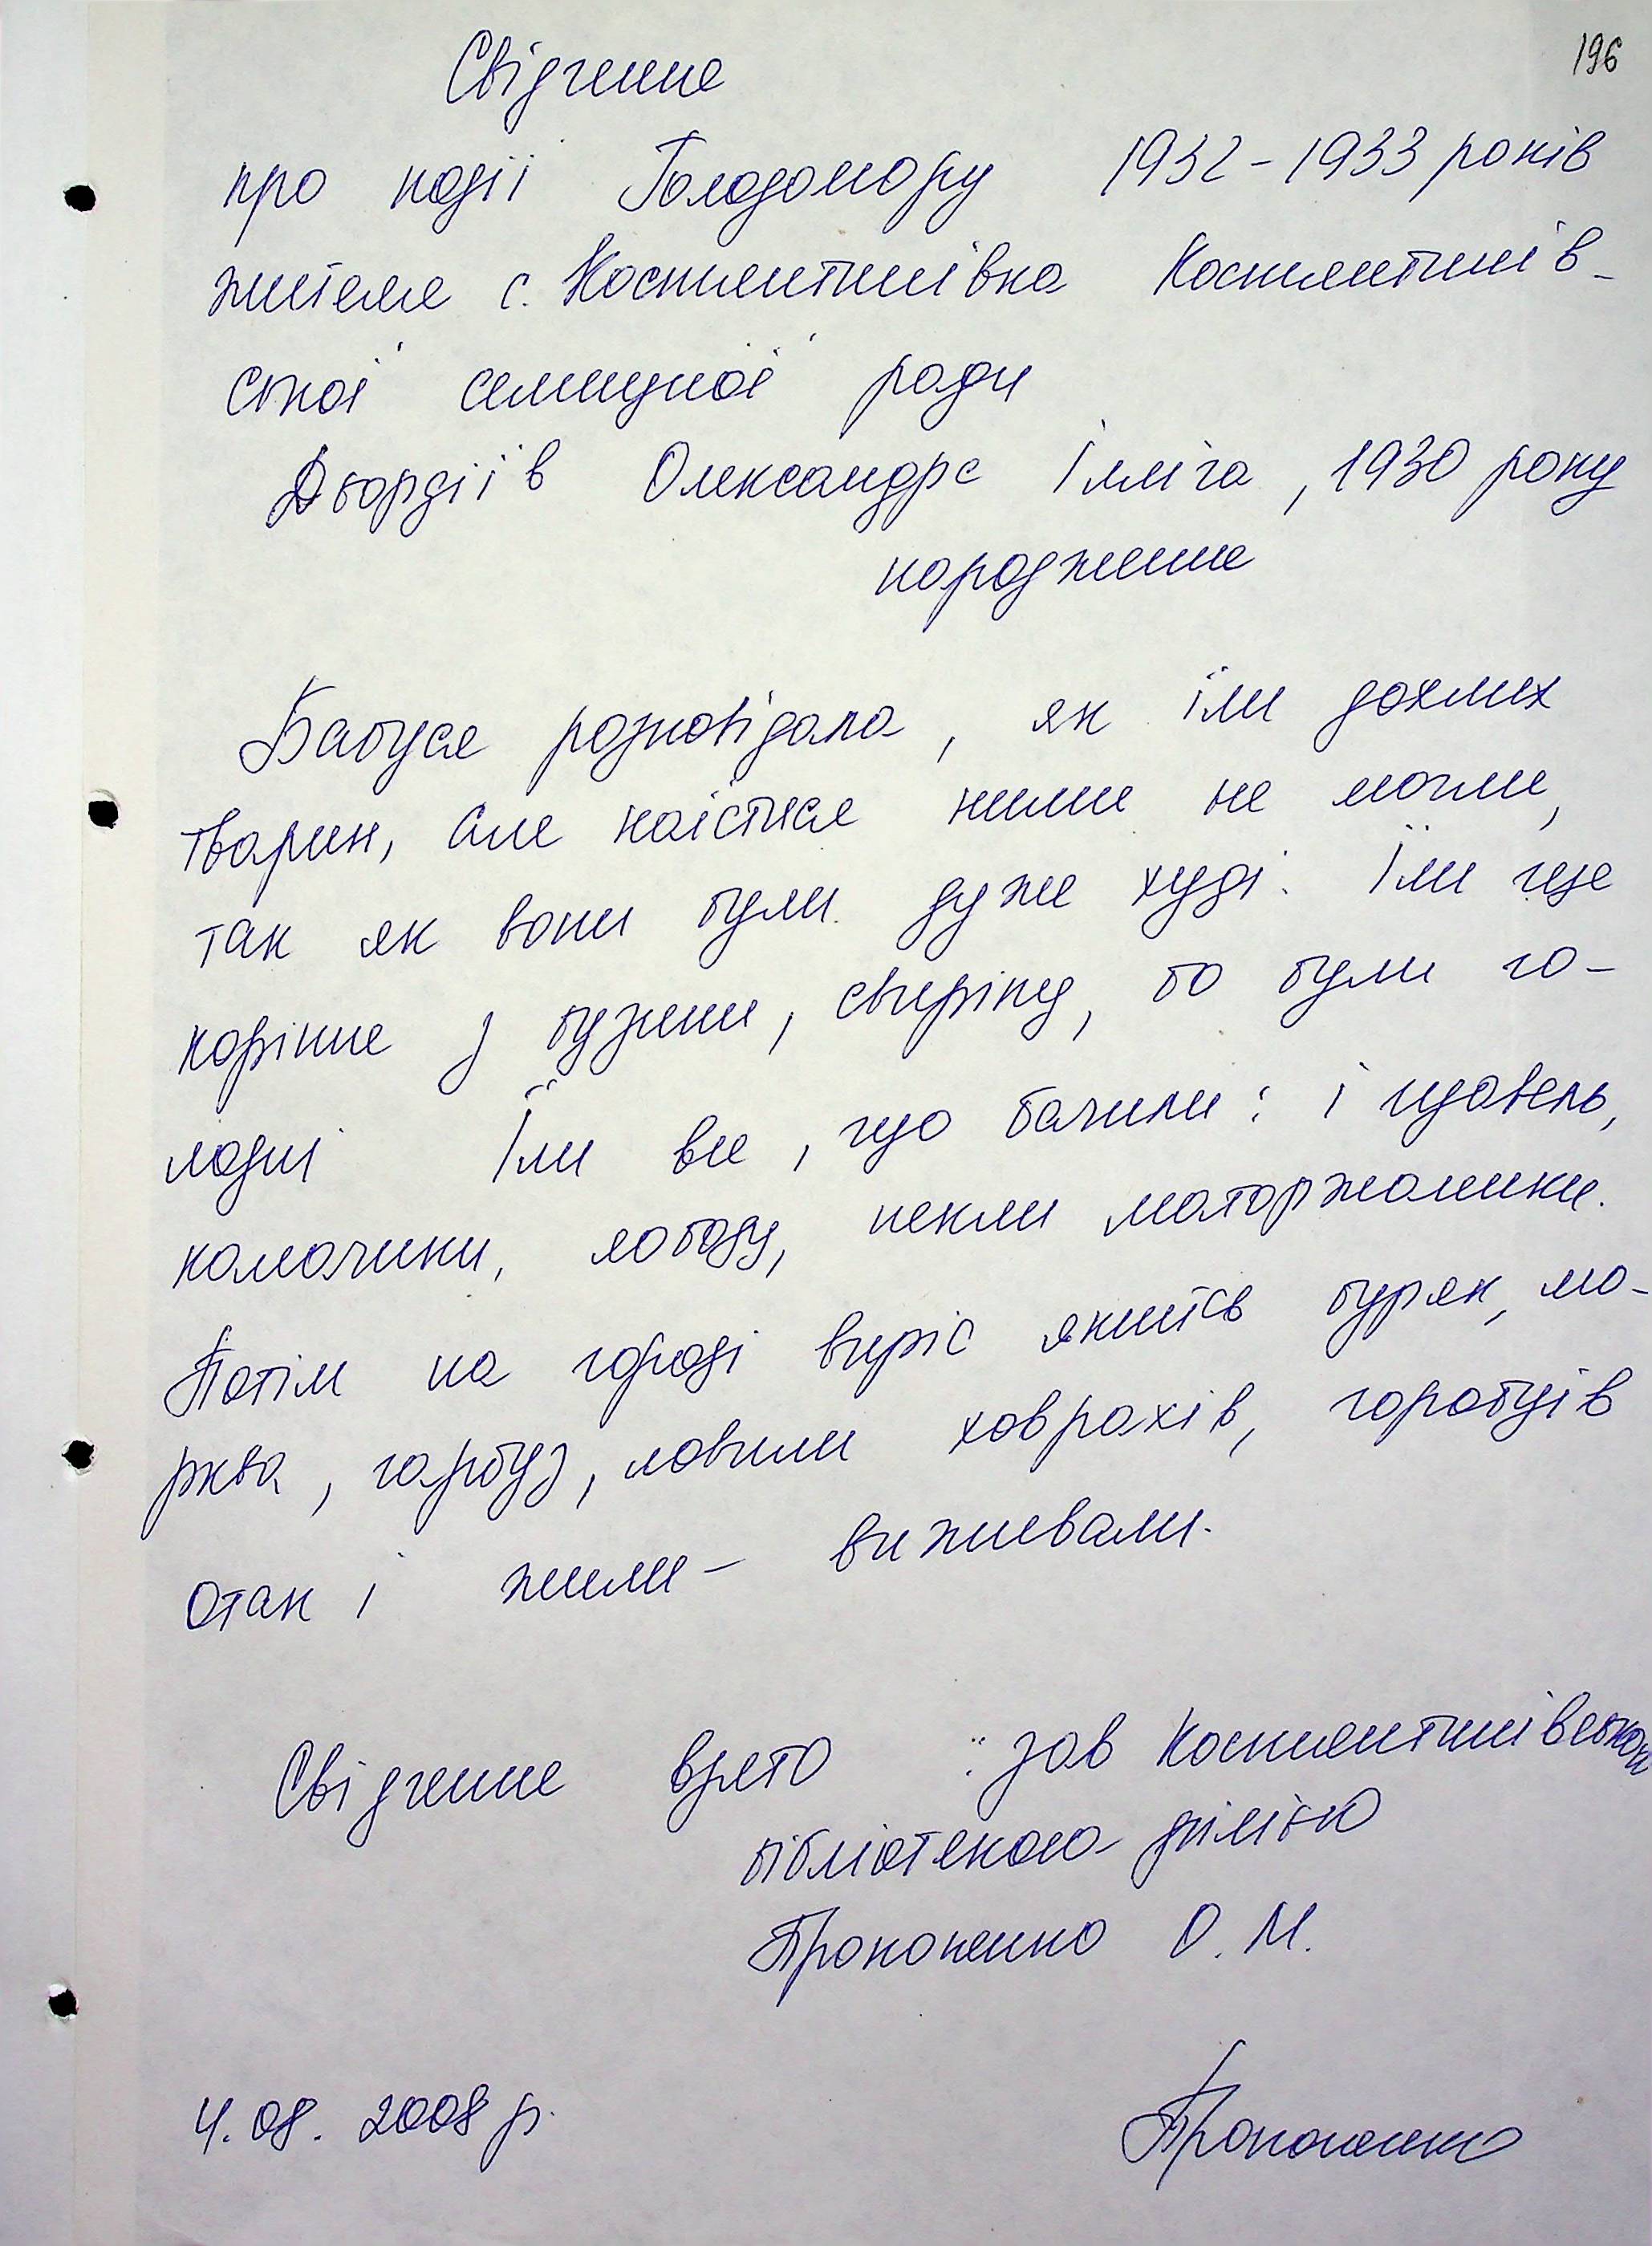 196
Свідчення
про події Голодомору 1932-1933 років
жителя с. Костянтинівка Костянтинів-
ської селищної ради
Дьордіїв Олександра Ілліча, 1930 року
народження
Бабуся розповідала, як їли дохлих
тварин, але наїстися ними не могли,
так як вони були дуже худі. Їли ще
коріння з бузини, свиріпу, бо були го-
лодні Їли все, що бачили: і щавель,
калачики, лободу, пекли маторжаники.
Потім на городі виріс якийсь буряк, мо-
рква, гарбуз, ловили ховрахів, горобців
Отак і жили - виживали.
Свідчення взято : зав Костянтинівською
бібліотекою-філією
Прокопенко О. М.
4.08.2008 р.
Прокопенко